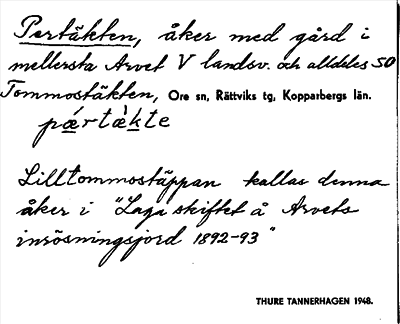 Pertäkten, åker med gård i
mellersta Arvet V landsv. och alldeles SO
Tommostäkten, Ore sn, Rättviks tg, Kopparbergs län.
pǽrtằkte
Lilltommostäppan kallas denna
åker i "Laga skiftet å Arvets
inrösningsjord 1892-93"
THURE TANNERHAGEN 1948.